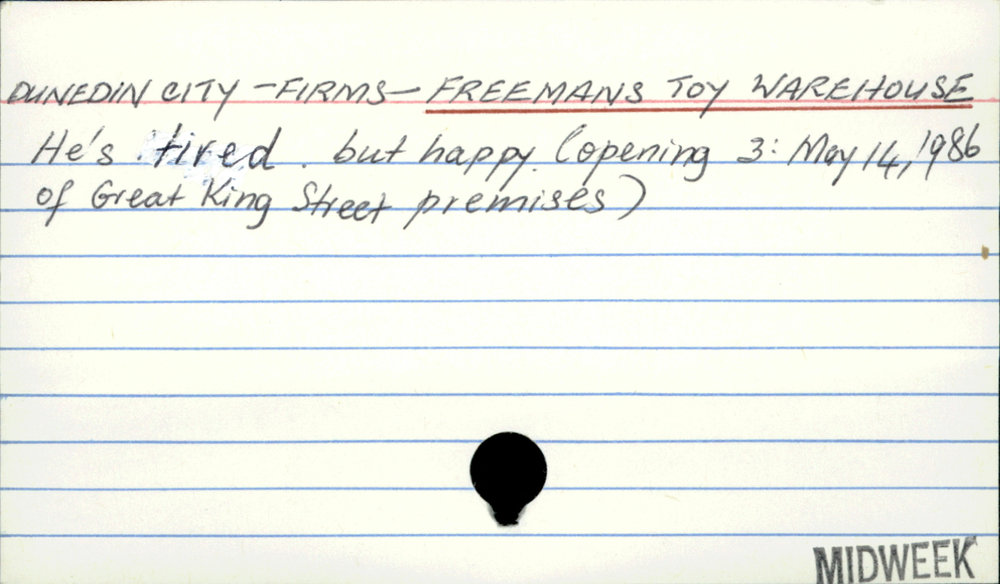 DUNEDIN CITY - FIRMS - FREEMANS TOY WAREHOUSE
He's tired . but happy. (opening 3: May 14, 1986
of Great King Street premises)
MIDWEEK